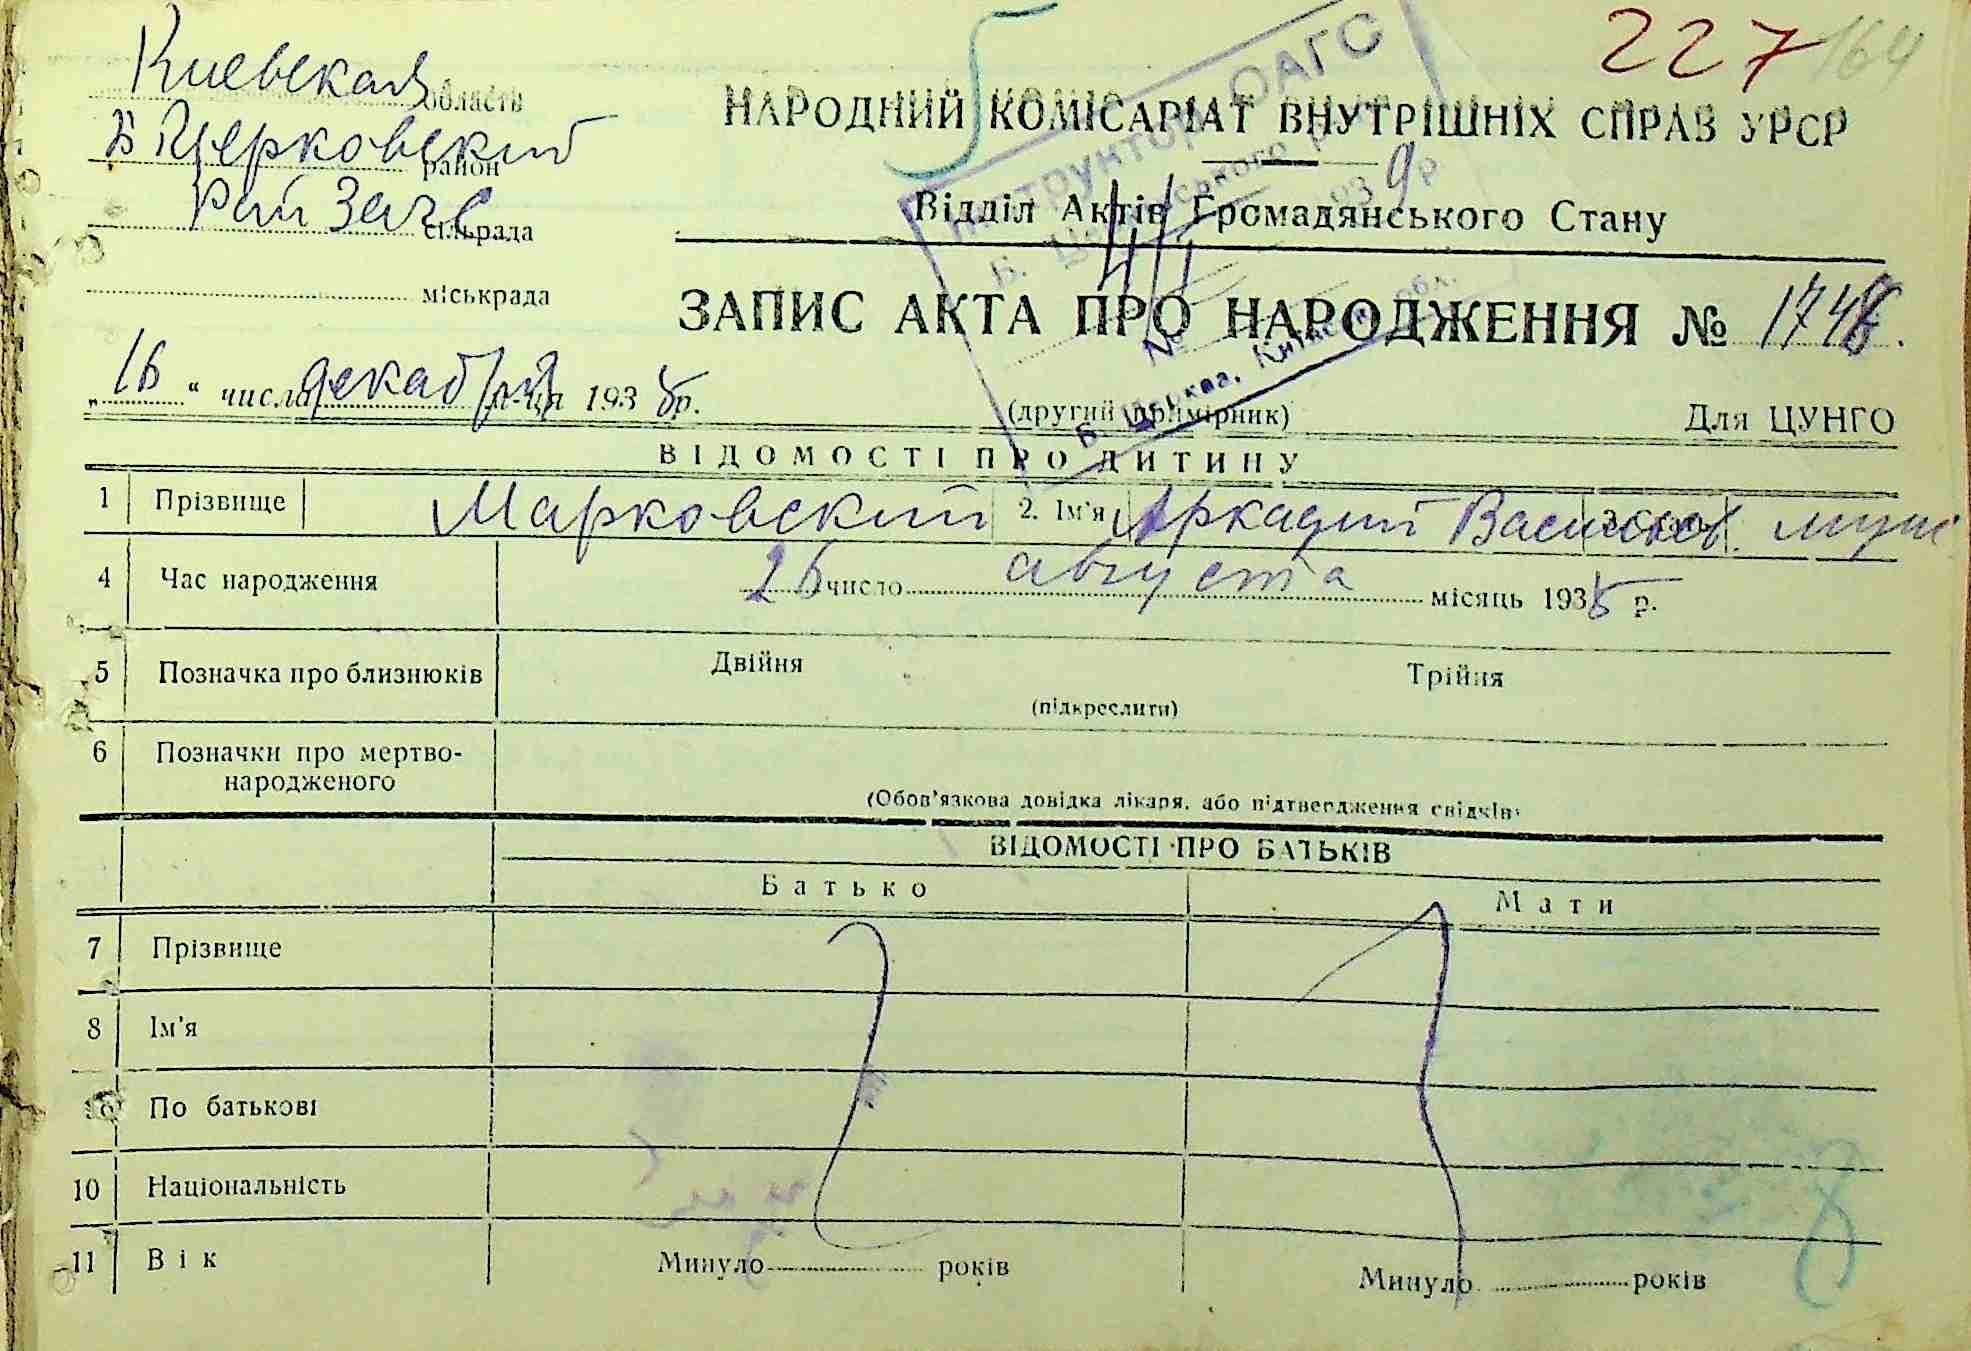 227 164
Киевская область
Б Церковский район
Рай Загс сільрада
міськрада
НАРОДНИЙ КОМІСАРІАТ ВНУТРІШНІХ СПРАВ УРСР
Відділ Актів Громадянського Стану
ЗАПИС АКТА ПРО НАРОДЖЕННЯ № 1748.
„16“ числа декабря м-ця 1938 р.
(другий примірник)
Для ЦУНГО
ВІДОМОСТІ ПРО ДИТИНУ
1 Прізвище Марковский 2. Ім'я Аркадий Васильев. 3. Стать муж
4 Час народження 26 число августа місяць 1938 р.
5 Позначка про близнюків Двійня Трійня
(підкреслити)
6 Позначки про мертво-
народженого
(Обов'язкова довідка лікаря, або підтвердження свідків)
ВІДОМОСТІ ПРО БАТЬКІВ
Батько Мати
7 Прізвище
8 Ім'я
По батькові
10 Національність
11 Вік Минуло років Минуло років
ОАГС
Б. Церква, Київської обл.